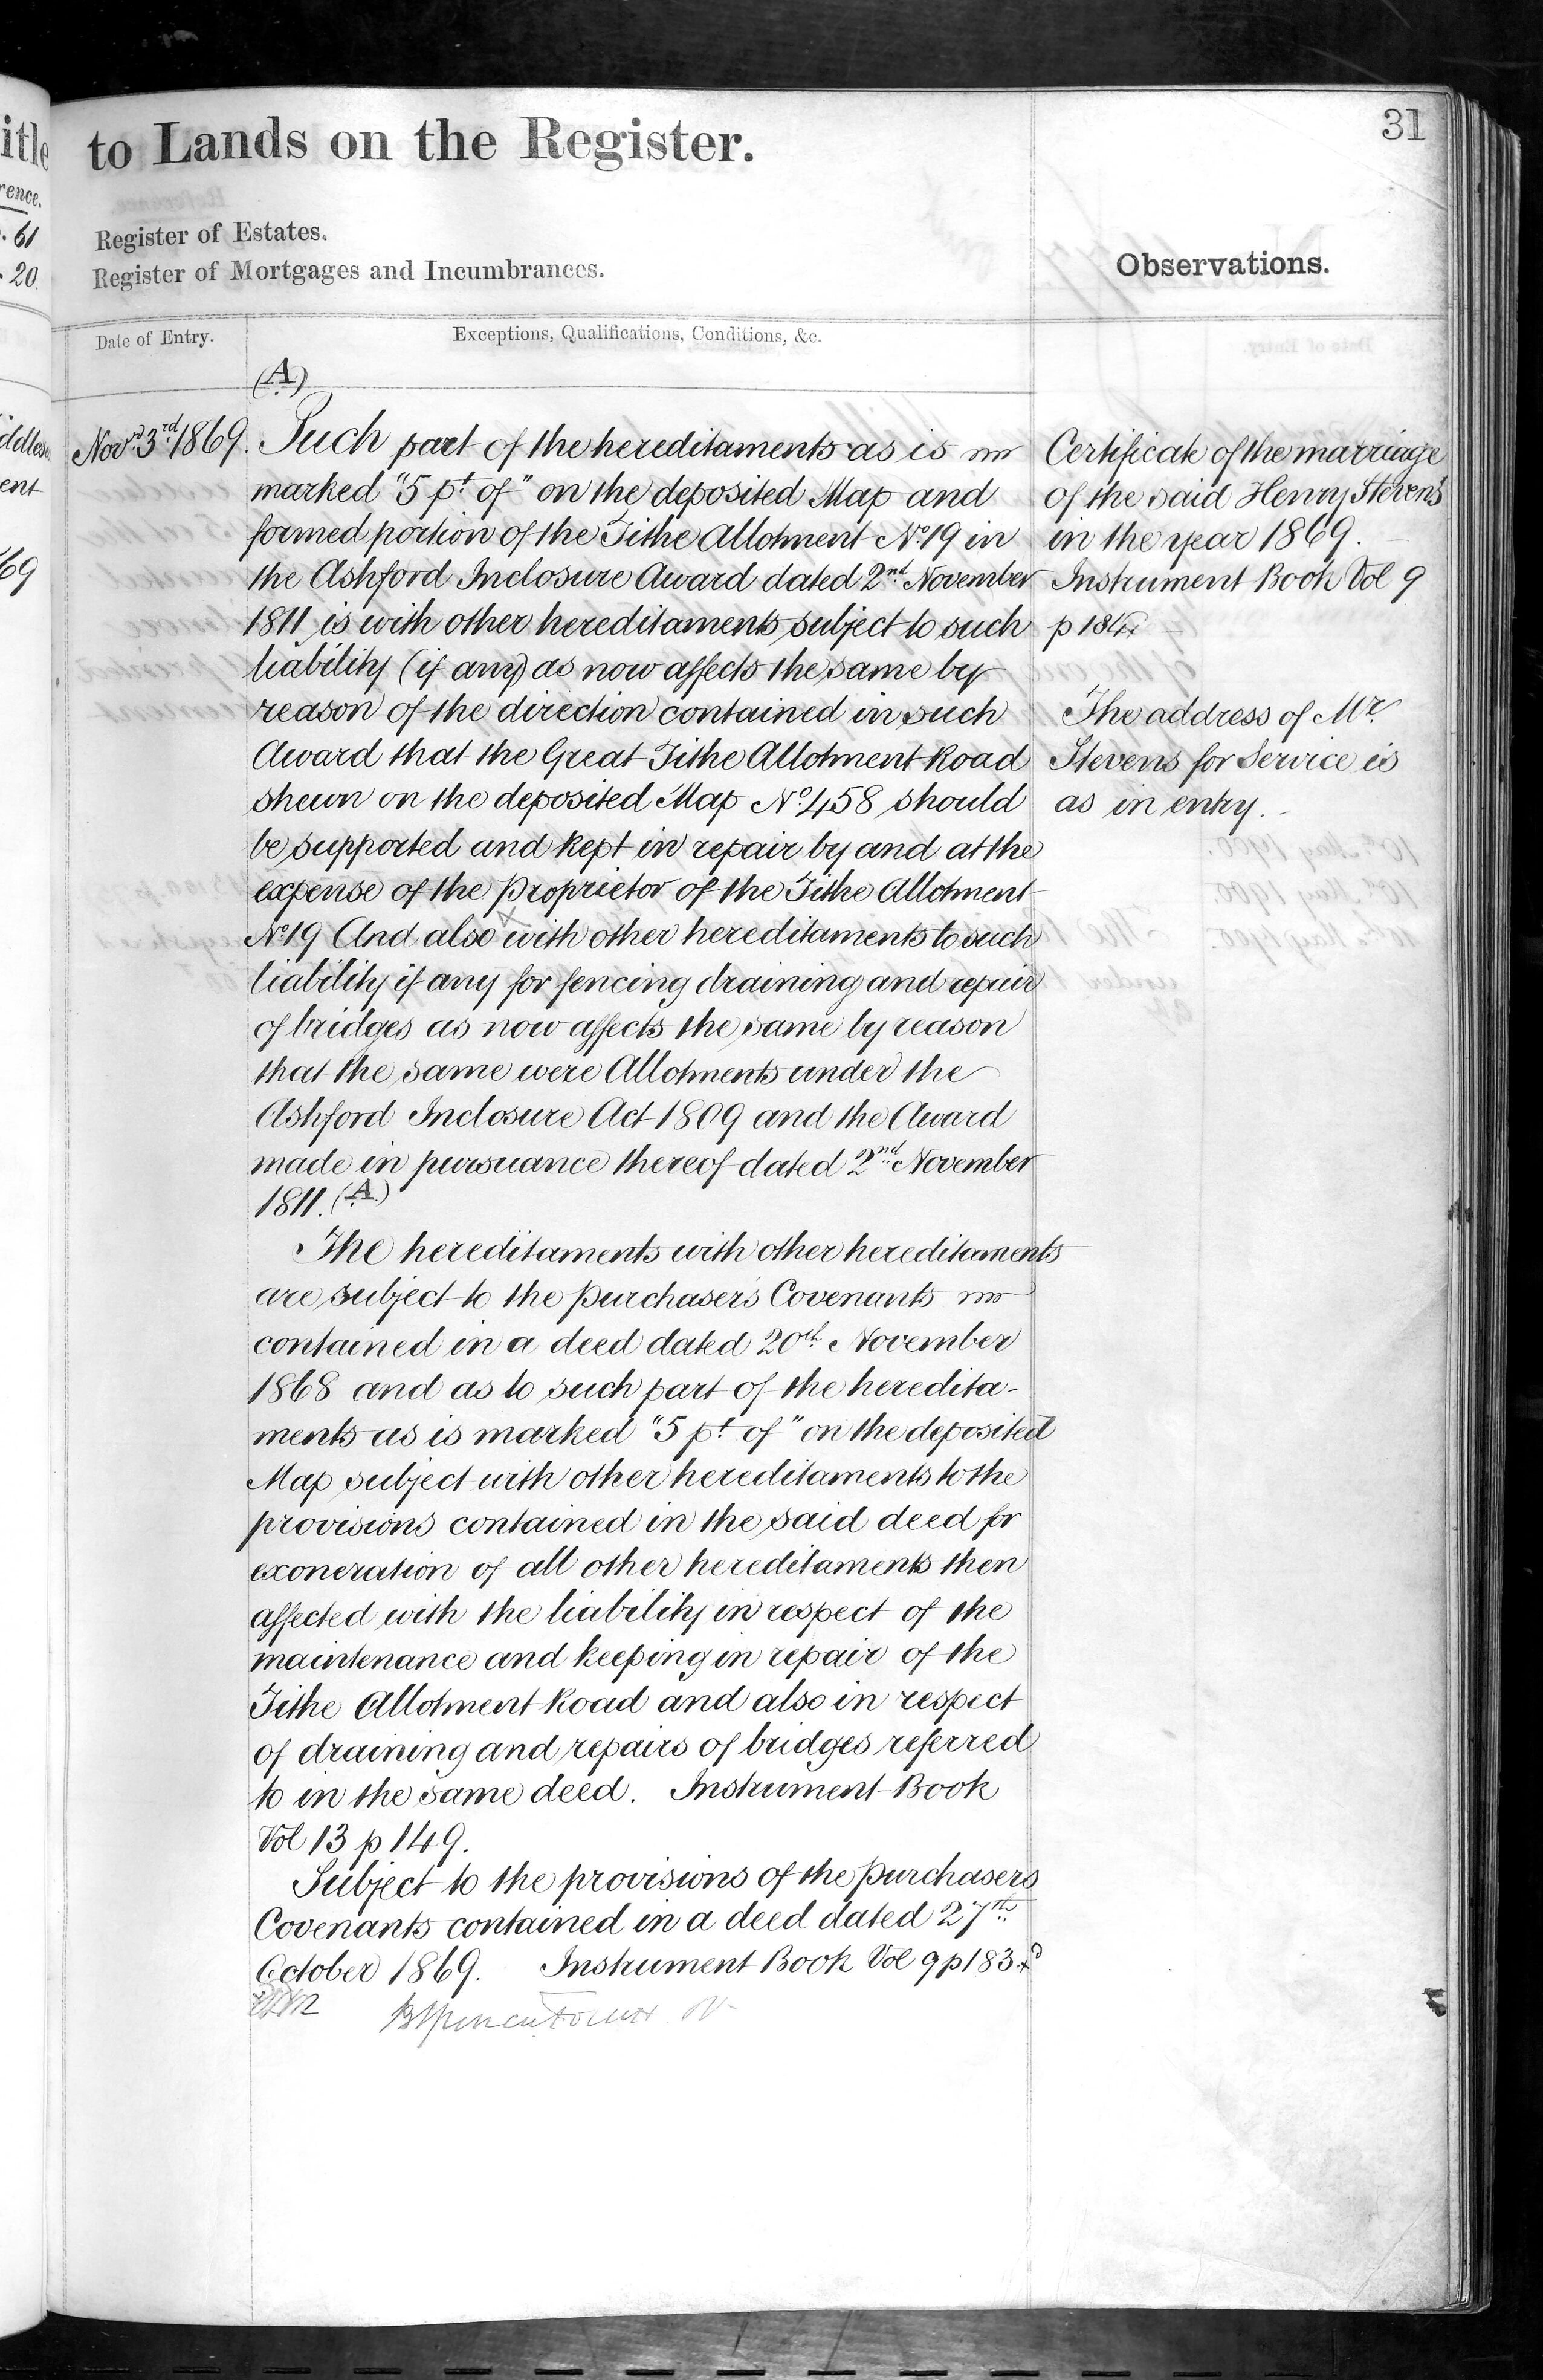 31
to Lands on the Register.
Register of Estates.
Register of Mortgages and Incumbrances.
Observations.
Date of Entry.
Exceptions, Qualifications, Conditions, &c.
(A)
Novr. 3rd 1869.
Such part of the hereditaments as is
marked "5 pt. of" on the deposited Map and
formed portion of the Tithe Allotment No. 19 in
the Ashford Inclosure Award dated 2nd. November
1811 is with other hereditaments subject to such
liability (if any) as now affects the same by
reason of the direction contained in such
Award that the Great Tithe Allotment Road
shewn on the deposited Map No. 458 should
be supported and kept in repair by and at the
expense of the Proprietor of the Tithe Allotment
No. 19 And also x with other hereditaments to such
liability if any for fencing draining and repair
of bridges as now affects the same by reason
that the same were Allotments under the
Ashford Inclosure Act 1809 and the Award
made in pursuance thereof dated 2nd. November
1811. (A)
The hereditaments with other hereditaments
are subject to the purchasers Covenants
contained in a deed dated 20th. November
1868 and as to such part of the heredita-
ments as is marked "5 pt. of" on the deposited
Map subject with other hereditaments to the
provisions contained in the said deed for
exoneration of all other hereditaments then
affected with the liability in respect of the
maintenance and keeping in repair of the
Tithe Allotment Road and also in respect
of draining and repairs of bridges referred
to in the same deed. Instrument Book
Vol 13 p 149.
Subject to the provisions of the purchasers
Covenants contained in a deed dated 27th.
October 1869. Instrument Book Vol 9 p 183
Certificate of the marriage
of the said Henry Stevens
in the year 1869.
Instrument Book Vol 9
p 184
The address of Mr.
Stevens for Service is
as in entry.
itle
rence.
. 61
. 20.
ddlese
ent
69